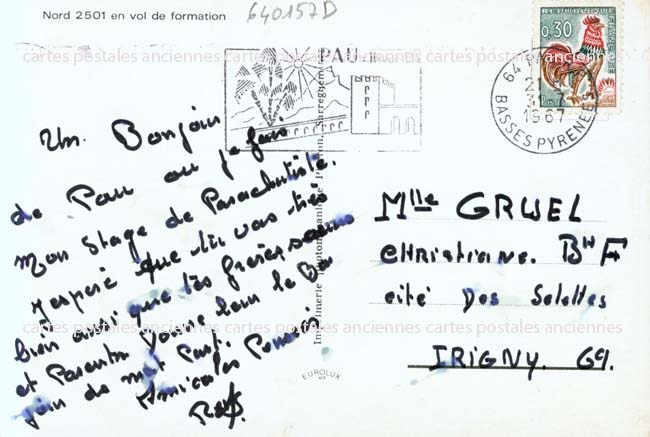 Nord 2501 en vol de formation
640157D
PAU
RÉPUBLIQUE FRANÇAISE
0,30
64 PAU
21
31-7
1967
BASSES PYRENEES
cartes postales anciennes cartes postales anciennes cartes postales anciennes
Un Bonjour
de Pau ou je fais
mon Stage de Parachutiste.
J'espère que tu vas très
bien ainsi que tes frères soeurs
et Parents. Donne leur le Bon
join de ma Part.
Amicales Pensées
Imprimerie
EUROLUX
Mlle GRUEL
CHRISTIANE. Bt F
cité Des Selettes
cartes postales anciennes cartes postales anciennes cartes postales anciennes
IRIGNY. 69.